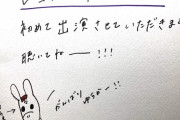 初めて出演させていただきま
聴いてねー!!!
がんばり